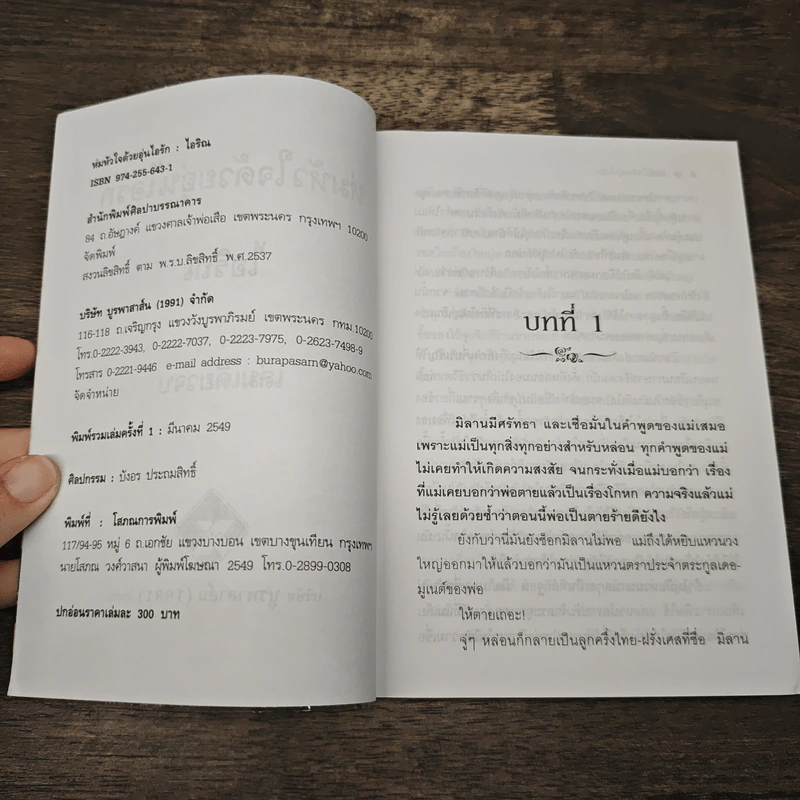 ห่มหัวใจด้วยอุ่นไอรัก : ไอริณ
ISBN 974-255-643-1
สำนักพิมพ์ศิลปาบรรณาคาร
84 ถ.อัษฎางค์ แขวงศาลเจ้าพ่อเสือ เขตพระนคร กรุงเทพฯ 10200
จัดพิมพ์
สงวนลิขสิทธิ์ ตาม พ.ร.บ.ลิขสิทธิ์ พ.ศ.2537
บริษัท บูรพาสาส์น (1991) จำกัด
116-118 ถ.เจริญกรุง แขวงวังบูรพาภิรมย์ เขตพระนคร กทม.10200
โทร.0-2222-3943, 0-2222-7037, 0-2223-7975, 0-2623-7498-9
โทรสาร 0-2221-9446 e-mail address : burapasarn@yahoo.com
จัดจำหน่าย
พิมพ์รวมเล่มครั้งที่ 1 : มีนาคม 2549
ศิลปกรรม : บังอร ประถมสิทธิ์
พิมพ์ที่ : โสภณการพิมพ์
117/94-95 หมู่ 6 ถ.เอกชัย แขวงบางบอน เขตบางขุนเทียน กรุงเทพฯ
นายโสภณ วงศ์วาสนา ผู้พิมพ์โฆษณา 2549 โทร.0-2899-0308
ปกอ่อนราคาเล่มละ 300 บาท
บทที่ 1
มิลานมีศรัทธา และเชื่อมั่นในคำพูดของแม่เสมอ
เพราะแม่เป็นทุกสิ่งทุกอย่างสำหรับหล่อน ทุกคำพูดของแม่
ไม่เคยทำให้เกิดความสงสัย จนกระทั่งเมื่อแม่บอกว่า เรื่อง
ที่แม่เคยบอกว่าพ่อตายแล้วเป็นเรื่องโกหก ความจริงแล้วแม่
ไม่รู้เลยด้วยซ้ำว่าตอนนี้พ่อเป็นตายร้ายดียังไง
ยังกับว่านี่มันยังช็อกมิลานไม่พอ แม่ถึงได้หยิบแหวนวง
ใหญ่ออกมาให้แล้วบอกว่ามันเป็นแหวนตราประจำตระกูลเดอ-
มูเนต์ของพ่อ
ให้ตายเถอะ!
จู่ๆ หล่อนก็กลายเป็นลูกครึ่งไทย-ฝรั่งเศสที่ชื่อ มิลาน